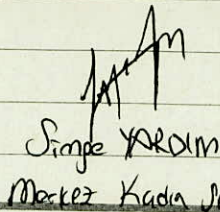 Simge YARDIM
Merkez Kadın